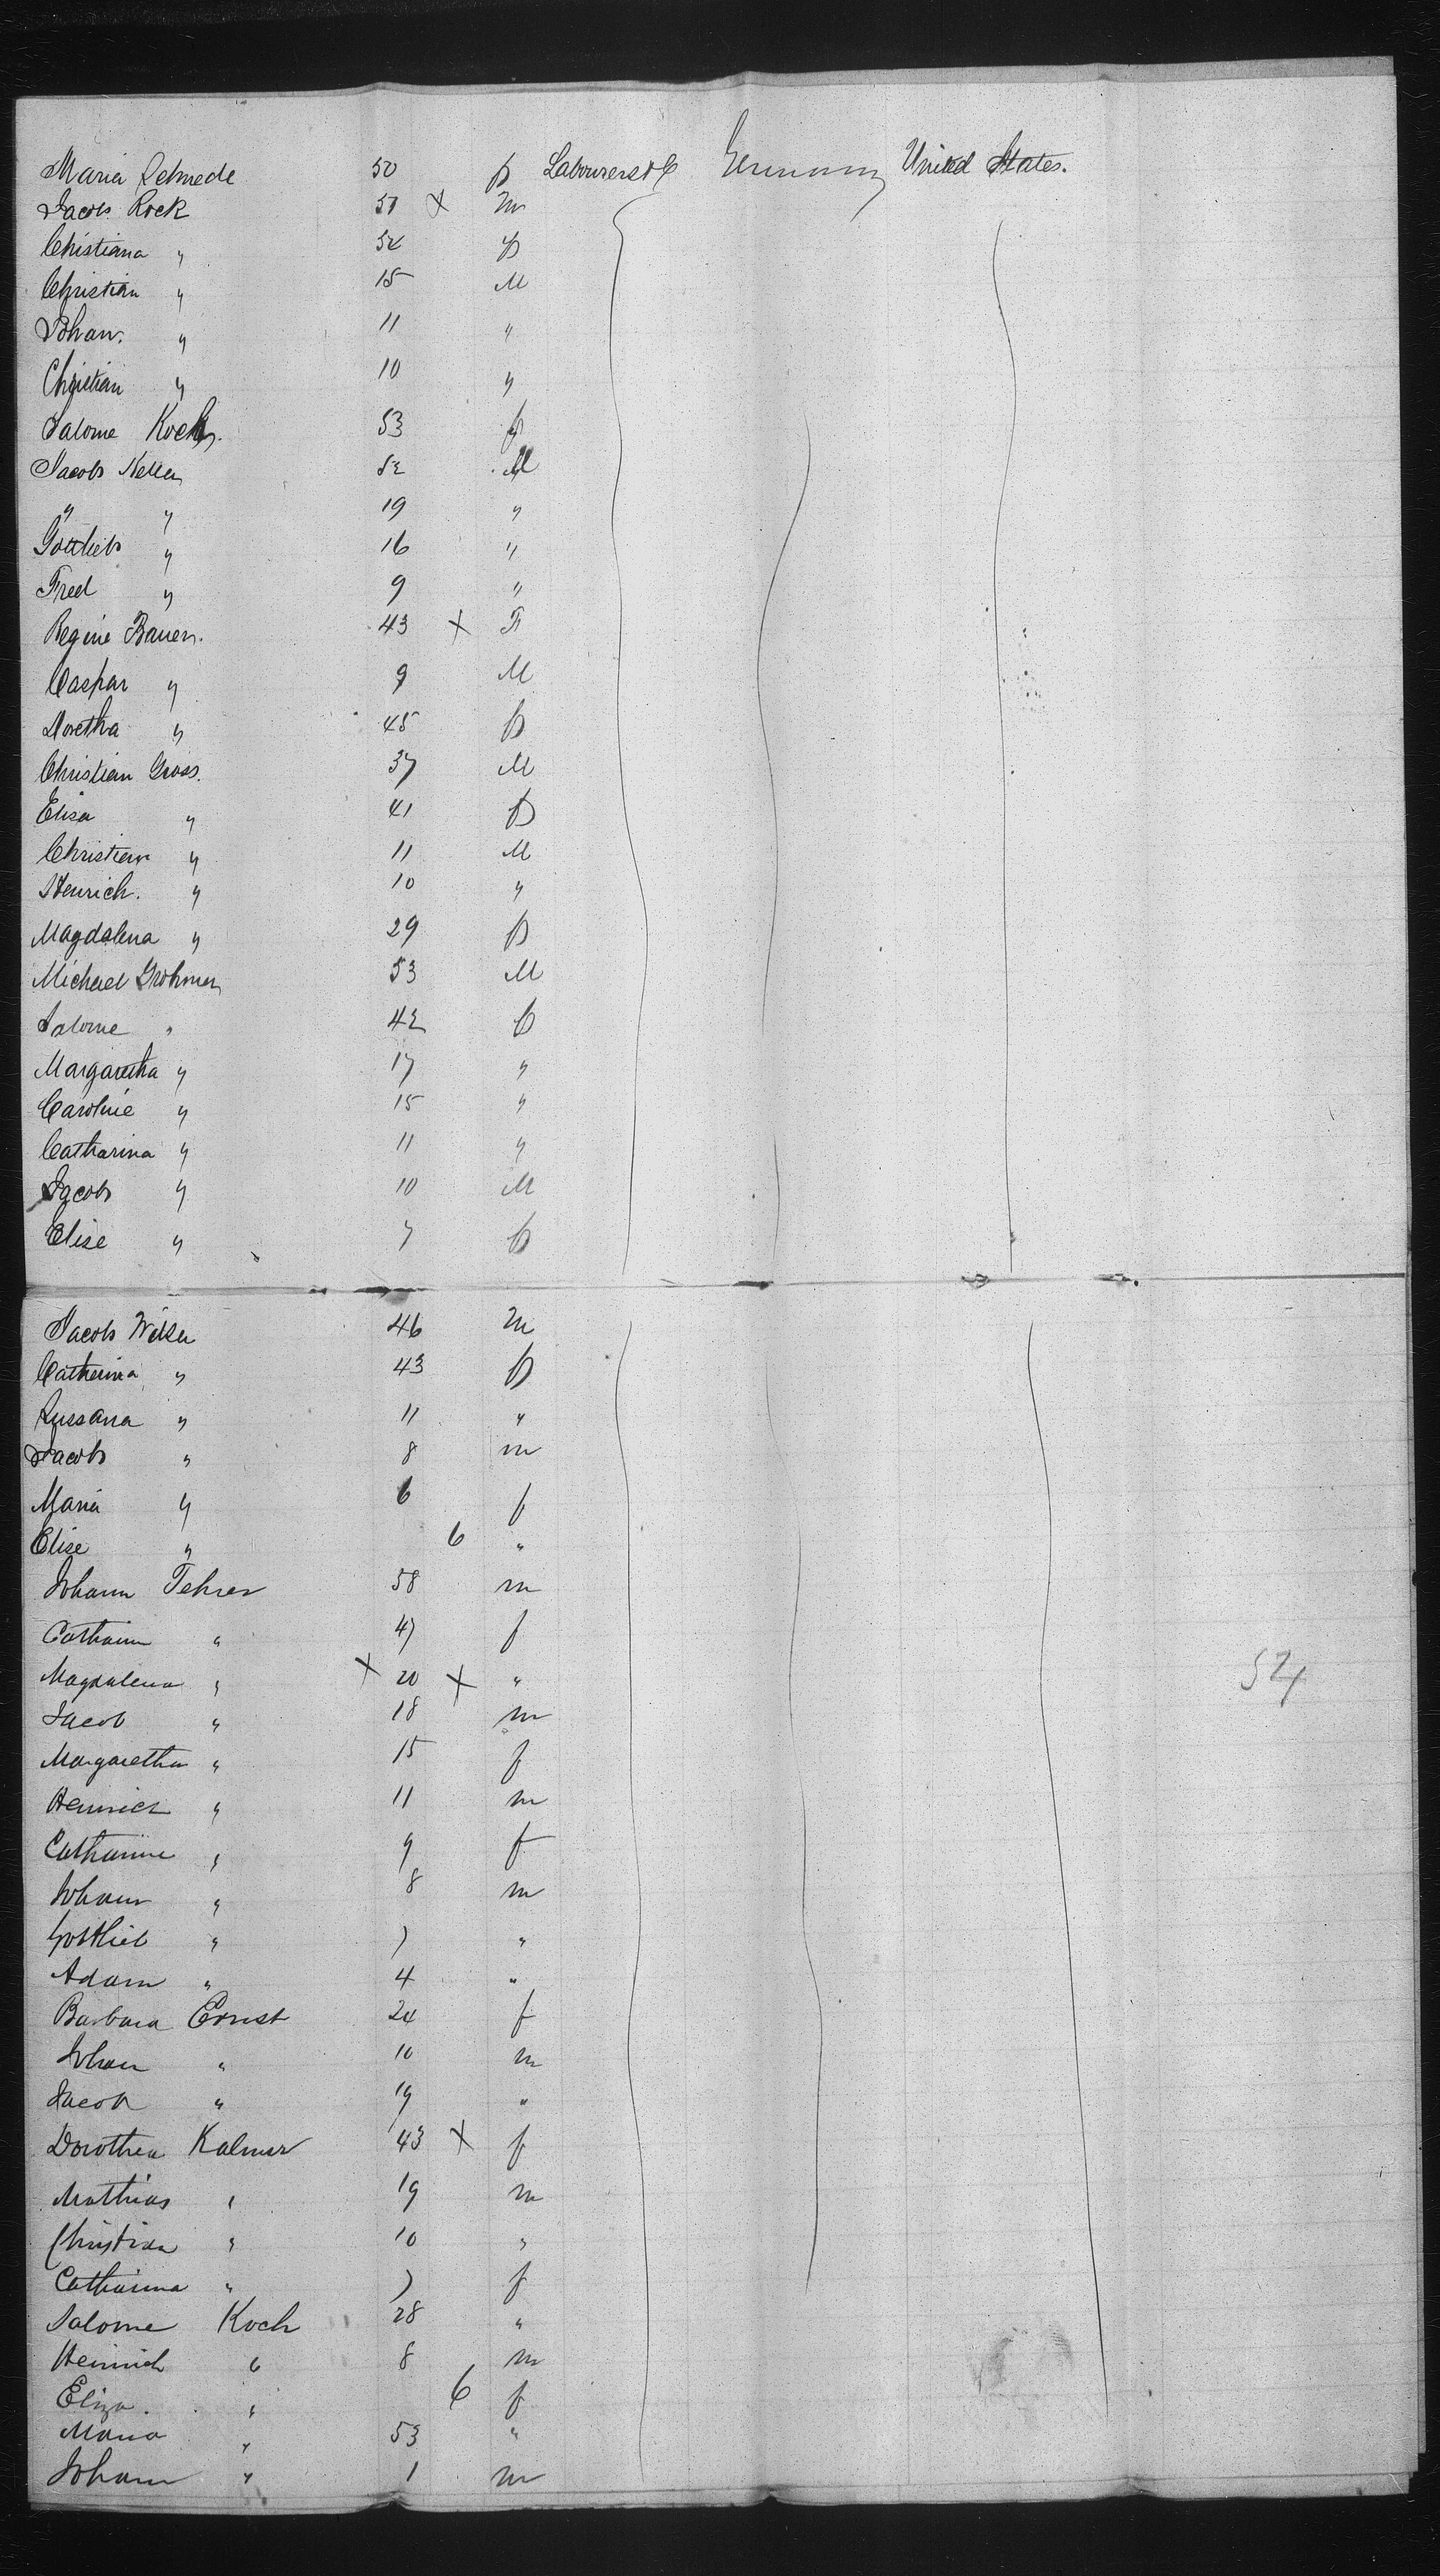 Maria Schmede 50 f Labourers &c Germany United States.
Jacob Rock 51 x m
Christiana " 54 f
Christian " 15 M
Johan. " 11 "
Christian " 10 "
Salome Koch. 53 f
Jacob Keller 52 M
" " 19 "
Gottlieb " 16 "
Fred " 9 "
Regine Bauer. 43 x F
Caspar " 9 M
Doretha " 45 f
Christian Gross. 37 M
Elisa " 41 f
Christian " 11 M
Henrich. " 10 "
Magdalena " 29 f
Michael Grohmer 53 M
Salome " 42 f
Margaretha " 17 "
Caroline " 15 "
Catharina " 11 "
Jacob " 10 M
Elise " 7 f
Jacob 46 m
Catherina " 43 f
Sussana " 11 "
Jacob " 8 m
Maria " 6 f
Elise " 6 "
Johann Fehrer 58 m
Catharin " 47 f
Magdalena " x 20 x "
Jacob " 18 m
Margaretha " 15 f
Heinrich " 11 m
Catharine " 9 f
Johann " 8 m
Gottlieb " 7 "
Adam " 4 "
Barbara Ernst 24 f
Johan " 10 m
Jacob " 19 "
Dorothea Kalmer 43 x f
Mathias " 19 m
Christian " 10 "
Catharina " 7 f
Salome Koch 28 "
Heinrich " 8 m
Eliza. " 6 f
Maria " 53 "
Johann " 1 m
54